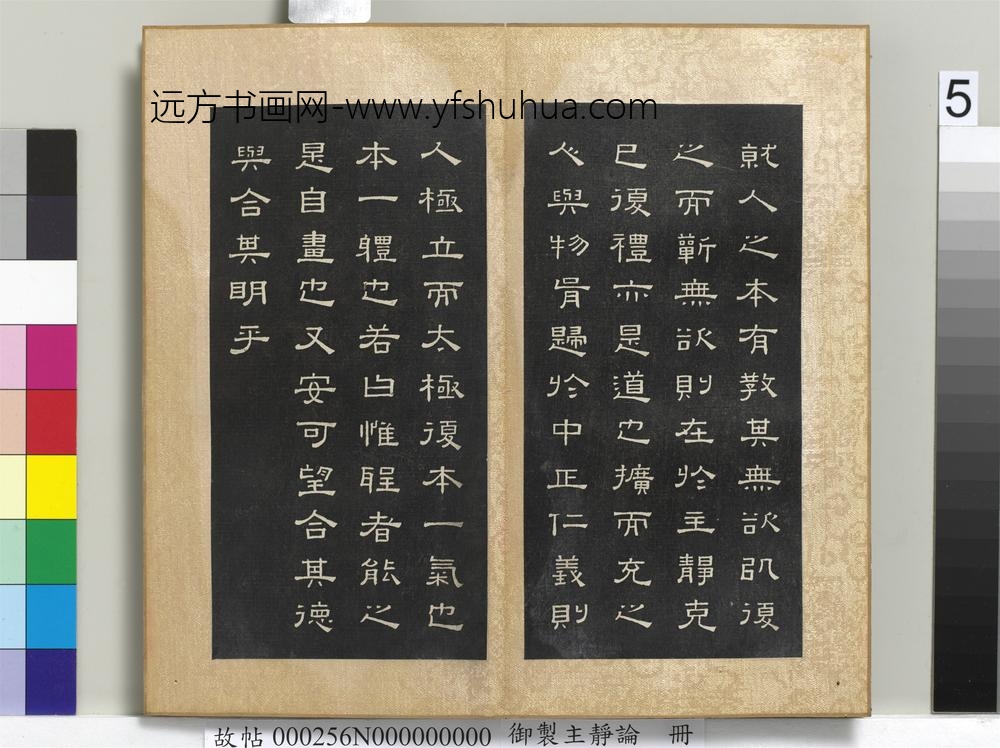 远方书画网-www.yfshuhua.com
5
就人之本有教其無欲即復
之而蘄無欲則在於主靜克
已復禮亦是道也擴而充之
心與物胥歸於中正仁義則
人極立而太極復本一氣也
本一體也若曰惟聖者能之
是自畫也又安可望合其德
與合其明乎
故帖 000256N000000000 御製主靜論 冊